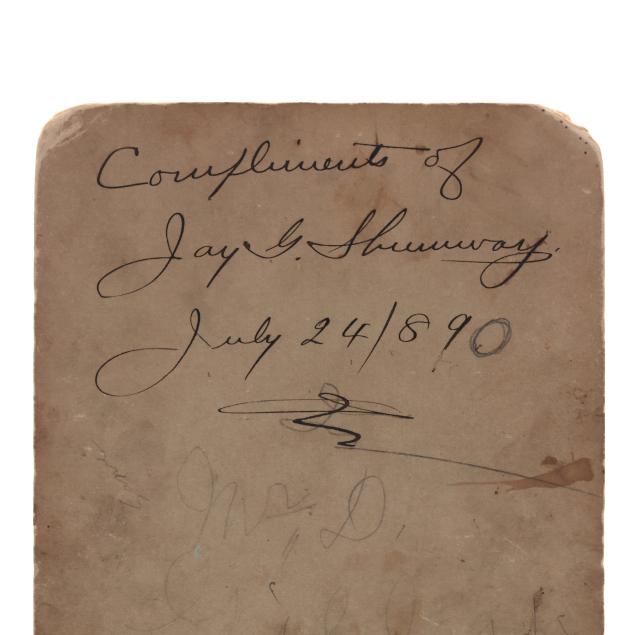 Compliments of
Jay G. Shumway.
July 24/890
Mr. D.